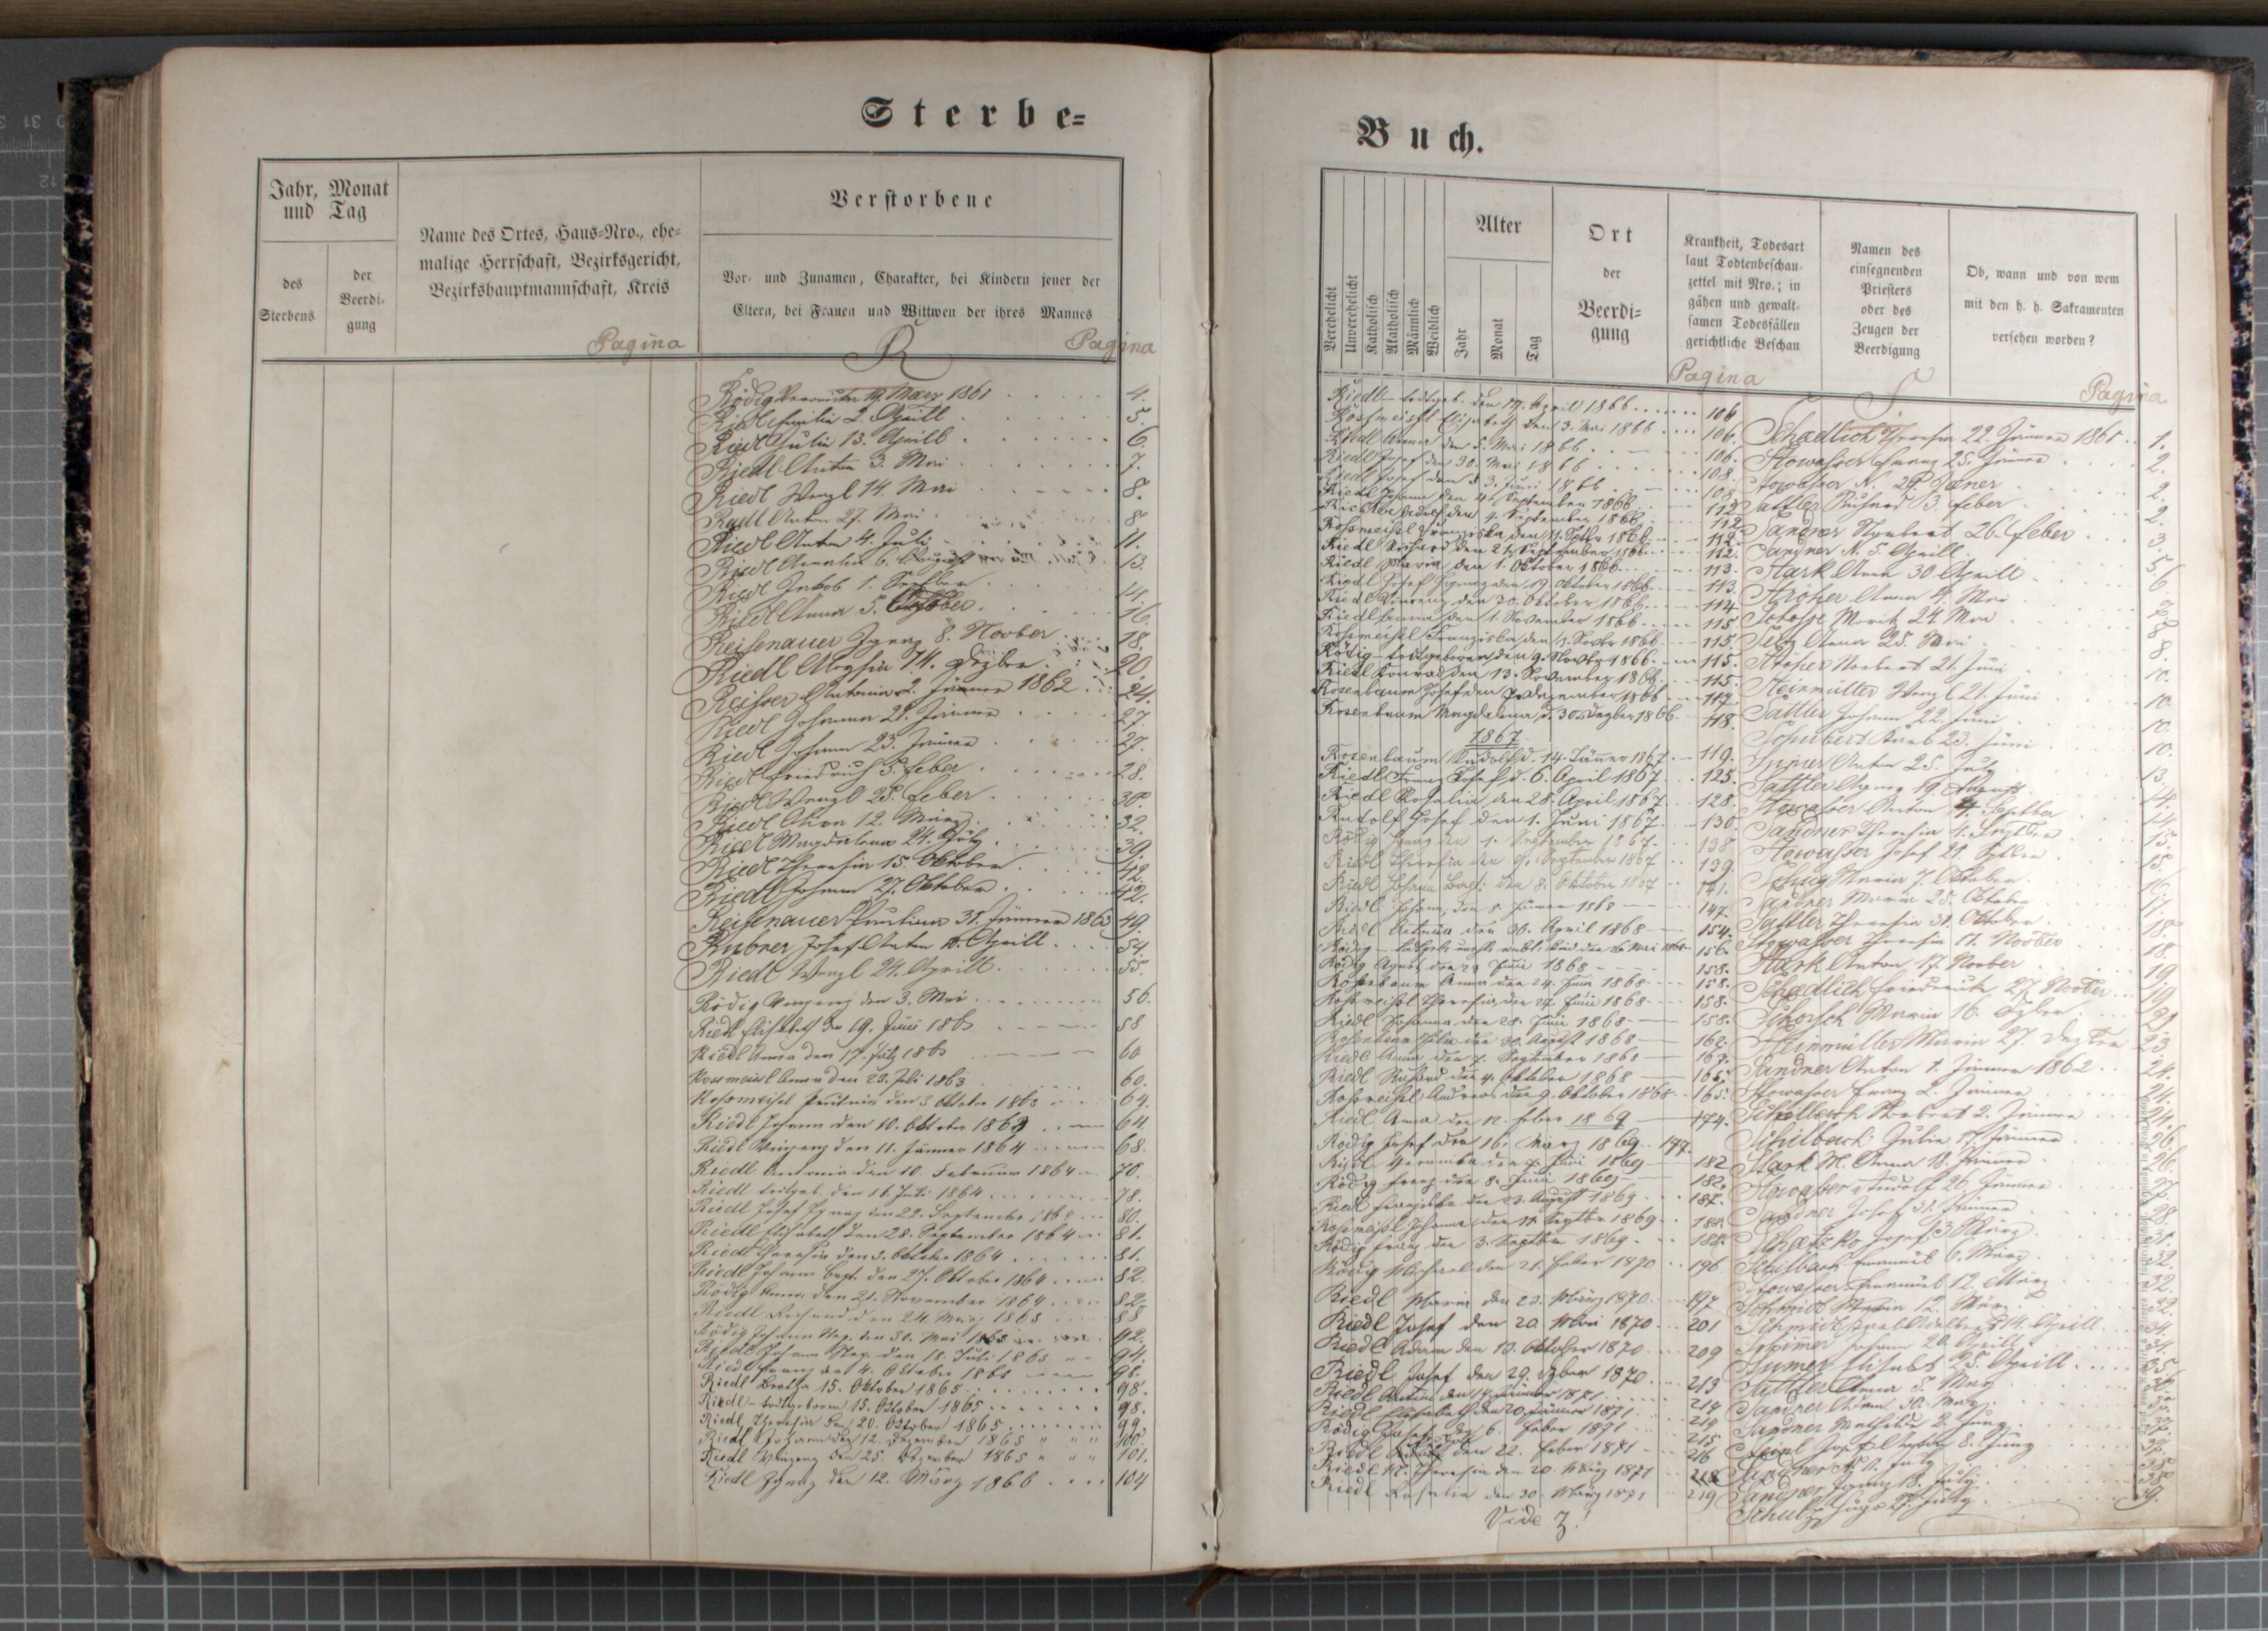 Sterbe=
Jahr, Monat
und Tag
des
Sterbens
der
Beerdi-
gung
Name des Ortes, Haus-Nro., ehe-
malige Herrschaft, Bezirksgericht,
Bezirkshauptmannschaft, Kreis
Pagina
Verstorbene
Vor- und Zunamen, Charakter, bei Kindern jener der
Eltern, bei Frauen und Wittwen der ihres Mannes
Pagina
R
Rödig 19. März 1861 4.
Riedl Emilia 2. Aprill 5.
Riedl Julia 13. Aprill 6.
Riedl Anton 3. Mai 7.
Riedl Wenzl 14. Mai 8.
Radl Anton 27. Mai 8.
Riedl Anton 4. Juli 11.
Riedl Amalia 6. August 13.
Riedl Jakob 1. 14.
Riedl Anna 5. Oktober 16.
Reisenauer Ignaz 8. Novber 18.
Riedl Aloysia 14. Dezber 20.
Reisser Antonia 2. Jänner 1862 24.
Riedl Johanna 21. Jänner 27.
Riedl Johann 23. Jänner 27.
Riedl Friedrich 5. Feber 28.
Riedl Wenzl 25. Feber 30.
Riedl 12. März 32.
Riedl Magdalena 24. July 39.
Riedl Theresia 15. Oktober 42.
Riedl Johann 27. Oktober 42.
Reisenauer Paulina 31. Jänner 1863 49.
Rubner Josef Anton 10. Aprill 54.
Riedl Wenzl 24. Aprill 55.
Rödig Vinzenz den 3. Mai 56.
Riedl Elisabeth den 19. Juni 1863 58
Riedl Anna den 17. July 1863 60
Rossmeisl Anna den 23. Juli 1863 60.
Rossmeisl den 3. Oktober 1863 64.
Riedl Johann den 10. Oktober 1863 64
Riedl Vinzenz den 11. Jänner 1864 68.
Riedl Antonia den 10. Februar 1864 70.
Riedl todtgeb. den 16. Juli 1864 78.
Riedl Josef Ignaz den 22. September 1864 80.
Riedl Elisabeth den 28. September 1864 81.
Riedl Theresia den 3. Oktober 1864 81.
Riedl Johann Bapt. den 27. Oktober 1864 82.
Rödig Anna den 21. November 1864 82.
Riedl Richard den 24. März 1865 88
Rödig Johann Nep. den 30. Mai 1865 92.
Riedl Johann Nep. den 18. Juli 1865 94.
Riedl Franz den 4. Oktober 1865 98.
Riedl Bertha 15. Oktober 1865 98.
Riedl - todtgeboren 15. Oktober 1865 98.
Riedl Theresia den 20. Oktober 1865 99.
Riedl Johann den 12. Dezember 1865 100.
Riedl Vinzenz den 25. Dezember 1865 101.
Riedl Ignaz den 12. März 1866 104
Buch.
Verehelicht
Unverehelicht
Katholisch
Akatholisch
Männlich
Weiblich
Alter
Jahr
Monat
Tag
Ort
der
Beerdi=
gung
Krankheit, Todesart
laut Todtenbeschau-
zettel mit Nro.; in
gähen und gewalt-
samen Todesfällen
gerichtliche Beschau
Pagina
Namen des
einsegnenden
Priesters
oder des
Zeugen der
Beerdigung
Ob, wann und von wem
mit den h. h. Sakramenten
versehen worden?
Pagina
Riedl - todtgeb. den 19. April 1866 106
Rossmeisl Elisabeth den 3. Mai 1866 106.
Riedl Anna den 5. Mai 1866 106.
Riedl Josef den 30. Mai 1866 108.
Riedl Josef den 3. Juni 1866 108
Riedl Johann den 4. September 1866 112
Riedl den 4. September 1866 112.
Rossmeisl Franziska den 11. Sptbr 1866 112.
Riedl Richard den 21. September 1866 112.
Riedl Maria den 1. Oktober 1866 113.
Riedl Josef Ignaz den 19. Oktober 1866 113.
Riedl Vinzenz den 30. Oktober 1866 114.
Riedl Emma den 1. November 1866 115
Rossmeisl Franziska den 3. Novbr 1866 115.
Rödig - todtgeboren den 9. Novbr 1866 115.
Riedl Konrad den 13. November 1866 115.
Rosenbaum Josef den 7. Dezember 1866 117.
Rosenbaum Magdalena d. 30. Dezber 1866 118.
1867
Rosenbaum Rudolf d. 14. Jänner 1867 119.
Riedl Franz Josef d. 6. April 1867 125.
Riedl Rosalia den 28. April 1867 128.
Rudolf Josef den 1. Juni 1867 130.
Rödig Franz den 1. September 1867 138
Riedl Theresia den 9. September 1867 139.
Riedl Johann Bapt. den 8. Oktober 1867 141.
Riedl Johann den 8. Jänner 1868 147.
Riedl Antonia den 26. April 1868 154.
Rödig den 26. Mai 1868 156.
Rödig Agnes den 23. Juni 1868 158.
Rosenbaum Anna den 24. Juni 1868 158.
Rossmeisl Theresia den 27. Juni 1868 158.
Riedl Johanna den 28. Juni 1868 158.
Rosenbaum den 30. August 1868 162.
Riedl Anna den 7. September 1868 163.
Riedl Richard den 4. Oktober 1868 165.
Rossmeisl Andreas den 9. Oktober 1868 165.
Riedl Anna den 12. Feber 1869 174.
Rödig Josef den 16. März 1869 177.
Riedl Veronika den 7. Juni 1869 182
Rödig Franz den 8. Juni 1869 182.
Riedl Franziska den 23. August 1869 187.
Rossmeisl Johanna den 11. Septbr 1869 188.
Rödig Franz den 3. Septber 1869 188.
Rödig Michael den 21. Feber 1870 196
Riedl Maria den 23. März 1870 197
Riedl Josef den 20. Mai 1870 201
Riedl Adam den 10. Oktober 1870 209
Riedl Josef den 29. 1870 213
Riedl Anton den 14. Jänner 1871 214
Riedl Elisabeth den 20. Jänner 1871 214
Rödig Josef den 6. Feber 1871 215
Riedl den 22. Feber 1871 216
Riedl M. Theresia den 20. März 1871 218
Riedl Rosalia den 30. März 1871 219
Vide Z!
S
Schædlich Theresia 22. Jänner 1861 1.
Stowasser Franz 25. Jänner 2.
Stowasser N. 28. Jäner 2.
Sattler Richard 3. Feber 2.
Sandner Norbert 26. Feber 3.
Sandner N. 5. Aprill 5.
Stark Anna 30. Aprill 6.
Anna 4. Mai
Moritz 24. Mai 8.
Anna 25. Mai 8.
Norbert 21. Juni 10.
Steinmüller Wenzl 21. Juni 10.
Sattler Johann 22. Juni 10.
Schubert 23. Juni 10.
Anton 25. July 13.
Sattler 19. August 14.
Stowasser Anton 4. Septber 14.
Sandner Theresia 1. 15.
Stowasser Josef 21. 15.
Maria 7. Oktober 16.
Sandner Maria 25. Oktober 17.
Sattler Theresia 31. Oktober 18.
Stowasser Theresia 11. Novber 18.
Stark Anton 17. Novber 19.
Schædlich Friedrich 27. Novber 19.
Schorsch Maria 16. 21.
Steinmüller Maria 27. 23.
Sandner Anton 1. Jänner 1862 24.
Stowasser Franz 2. Jänner 24.
Norbert 2. Jänner 24.
Schilbach Julia 17. Jänner 26.
Stark M. Anna 18. Jänner 26.
Stowasser Rudolf 26. Jänner 27.
Sandner Josef 31. Jänner 28.
Josef 3. März
Schilbach Emanuel 6. März 32.
Stowasser Emanuel 12. März 32.
Schmidt Maria 12. März 32.
Schmidt 14. Aprill 34.
Johann 20. Aprill 34.
Elisabet 25. Aprill 35.
Sattler Anna 5. May
Sandner 30. May
Sandner Mathilde 2. Juny 37.
Josef Anton 8. Juny
Sandner July 38.
Sandner Franz 18. July 38.
Schulz Hugo 27. July 39.